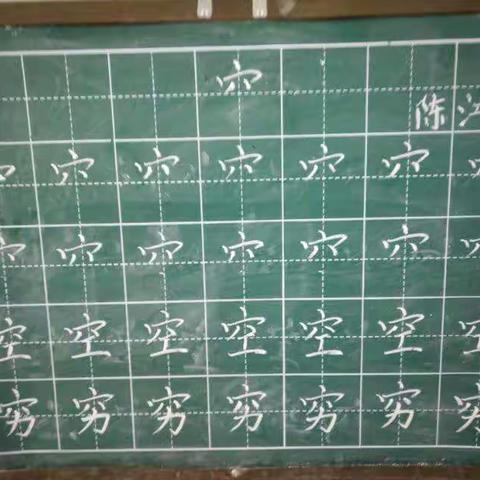 穴 陈江
穴 穴 穴 穴 穴 穴 穴
穴 穴 穴 穴 穴 穴 穴
空 空 空 空 空 空 空
穷 穷 穷 穷 穷 穷 穷